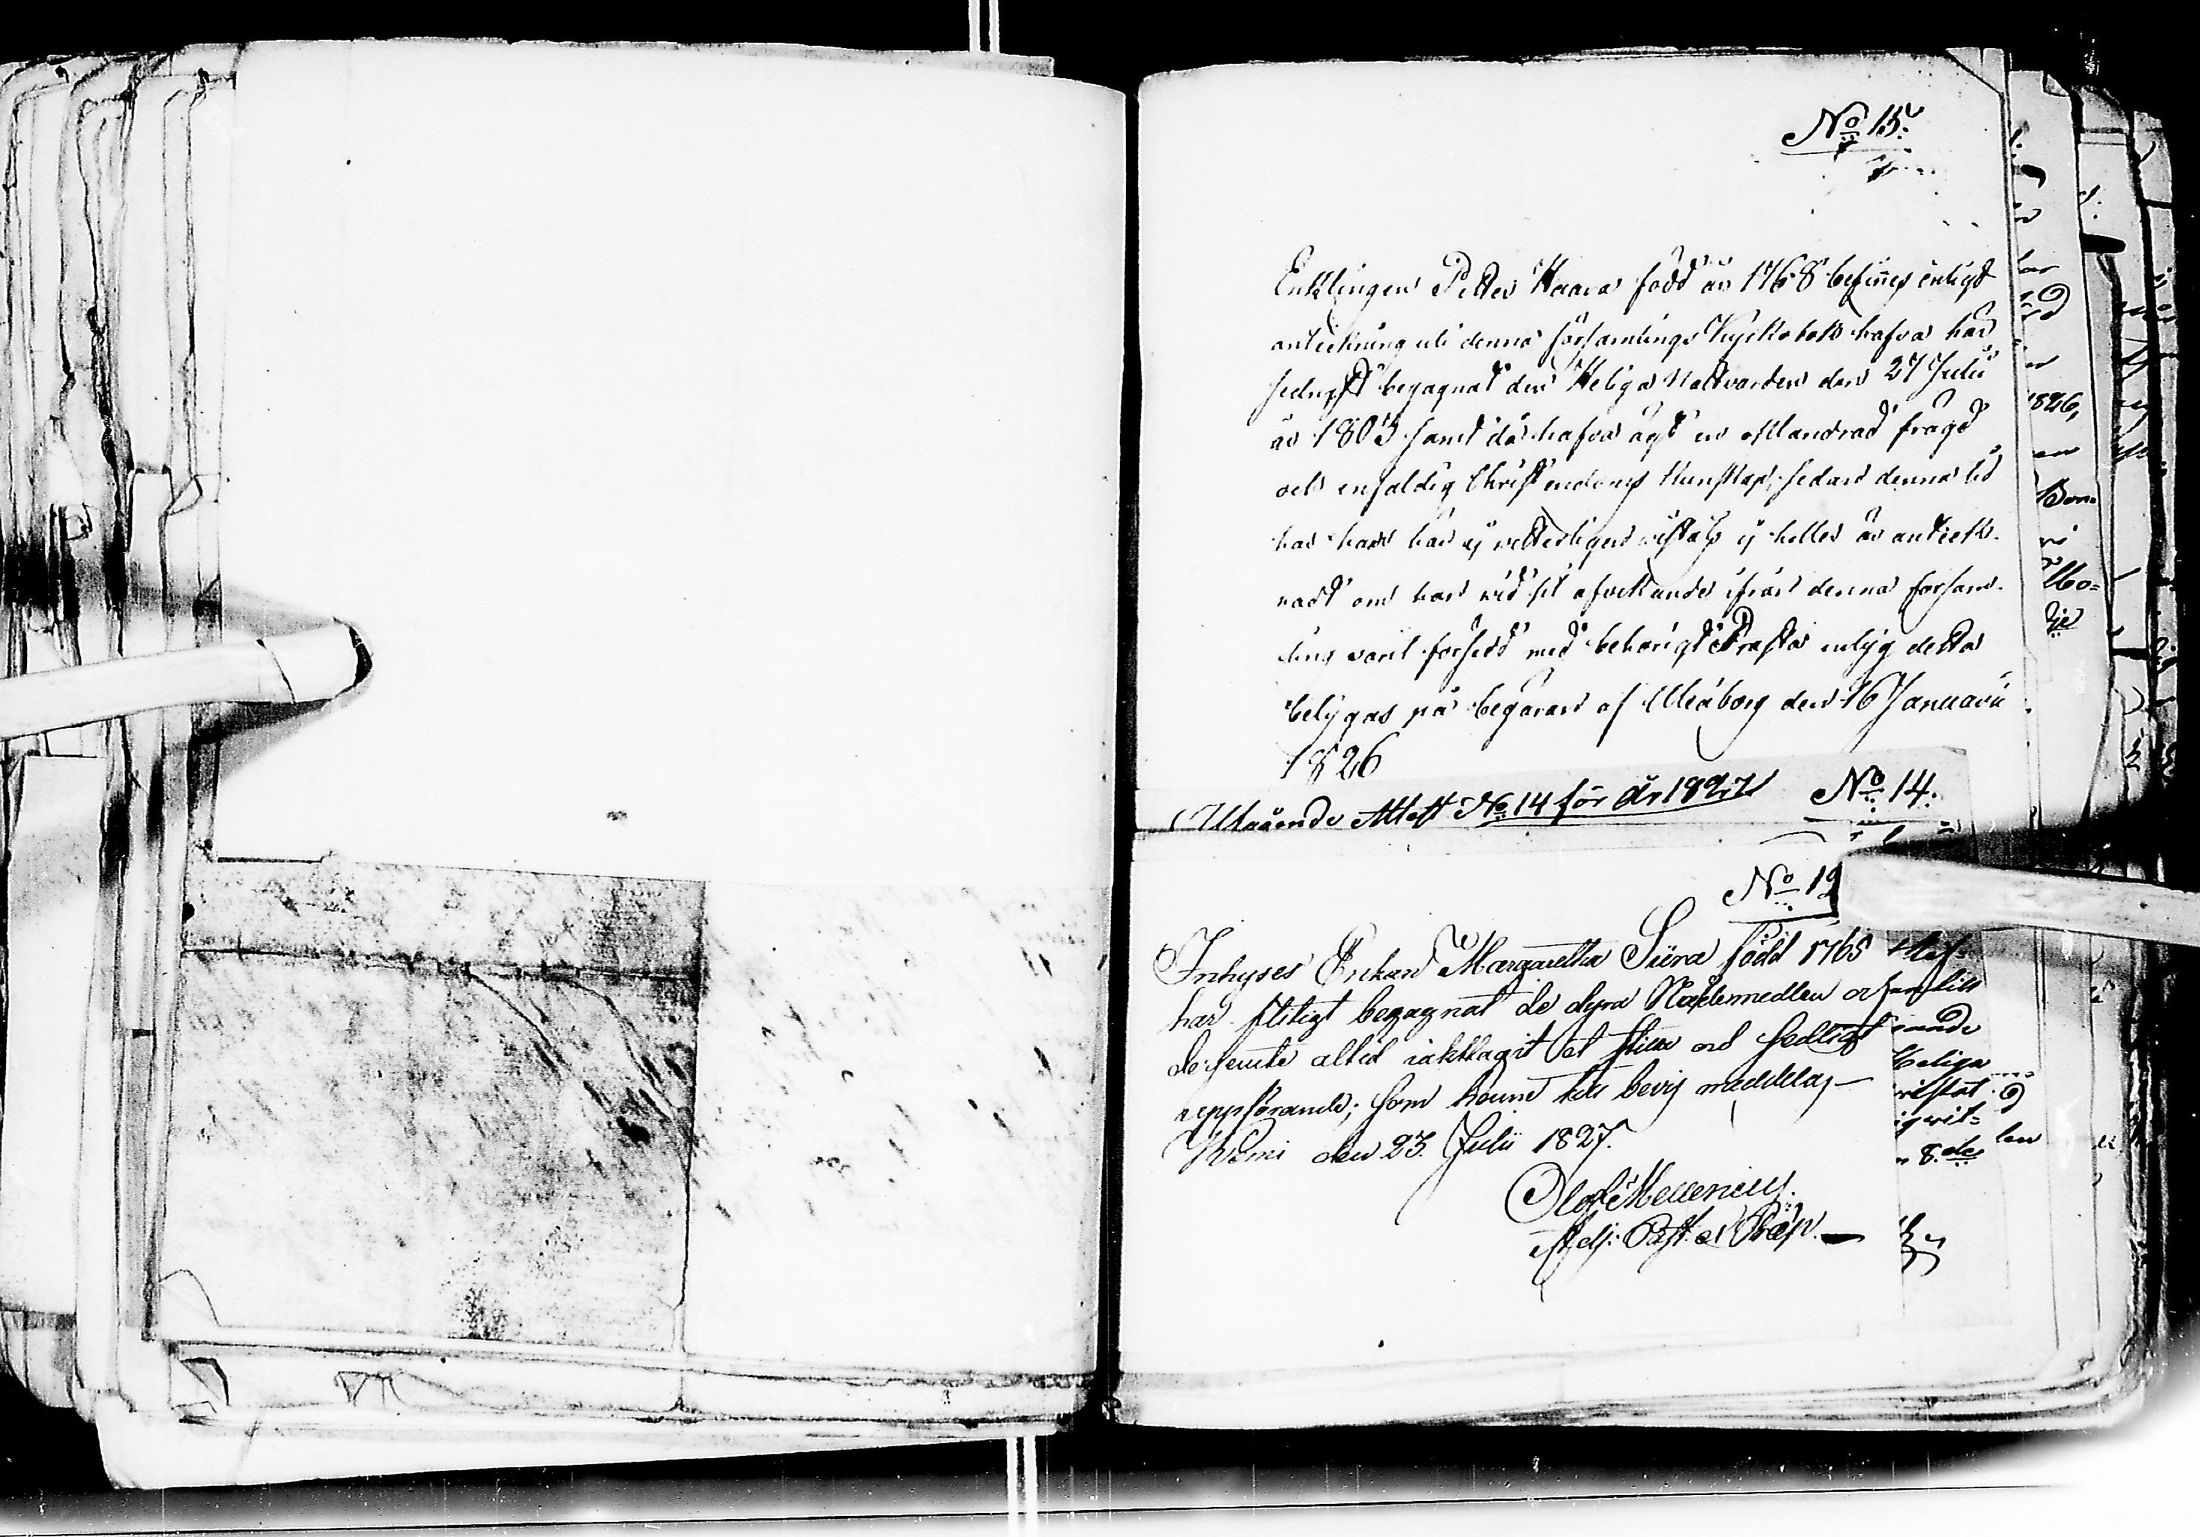 No 15.
Enklingen Petter Haara född år 1768 befinnes enligt
anteckning uti denna församlings Kyrkobok hafva här
sednast begagnat den Heliga Nattvarden den 27 Julii
år 1803 samt då hafva ägt en oklandrad frägd
och enfaldig Christendoms Kunskap; sedan denna tid
har han här ej vetterligen vistats ej heller är anteck-
nadt om han vid sit afvikande ifrån denna försam-
ling varit försedd med behörigt Prästa
betygas på begäran af Uleåborg den 16 Januarii
1826
Utgående Attest No 14 för år 1827
No 14.
No 12
Inhyses Enkan Margaretha Siira född 1765
har flitigt begagnat de dyra Nådemedlen och
de temte altid iakttagit et stilla och sedligt
uppförande; som henne till bevis meddelas
Kemi den 23. Julii 1827.
Olof Mellenius.
Adj: Past. et Præp.
1826,
Heliga
8.de